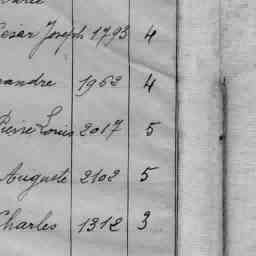 César Joseph 1793 4
andre 1962 4
Pierre Louis 2017 5
Auguste 2102 5
Charles 1312 3